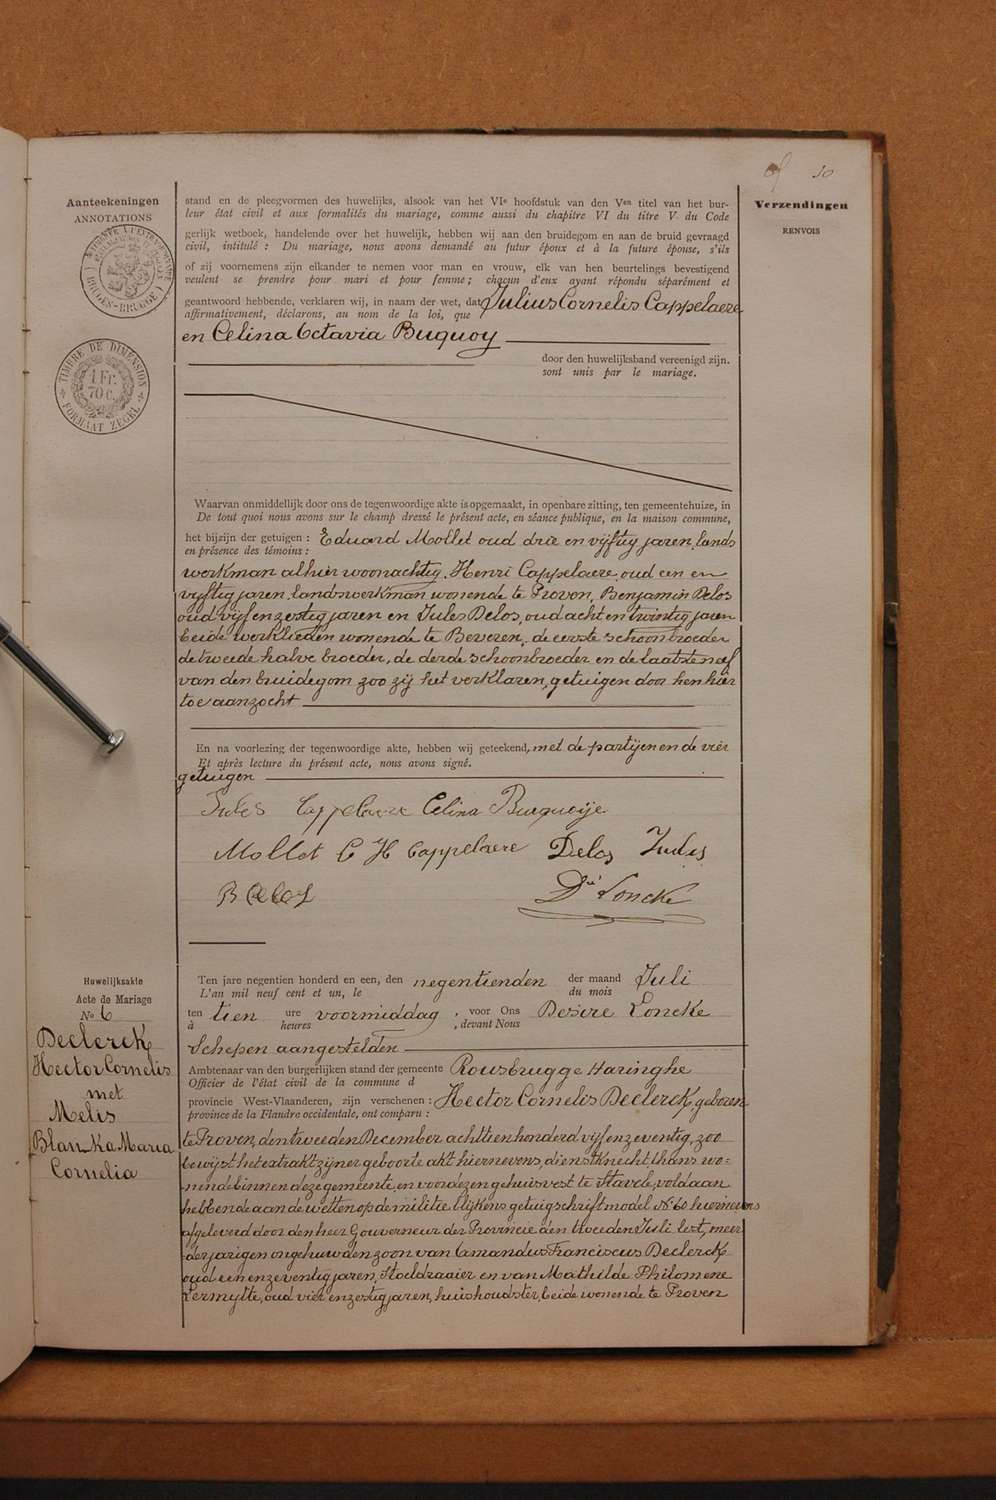 10
Aanteekeningen
ANNOTATIONS
Verzendingen
RENVOIS
TIMBRE DE DIMENSION
1 Fr.
70 c.
FORMAAT ZEGEL
stand en de pleegvormen des huwelijks, alsook van het VIe hoofdstuk van den Ven titel van het bur-
leur état civil et aux formalités du mariage, comme aussi du chapitre VI du titre V du Code
gerlijk wetboek, handelende over het huwelijk, hebben wij aan den bruidegom en aan de bruid gevraagd
civil, intitulé : Du mariage, nous avons demandé au futur époux et à la future épouse, s'ils
of zij voornemens zijn elkander te nemen voor man en vrouw, elk van hen beurtelings bevestigend
veulent se prendre pour mari et pour femme ; chacun d'eux ayant répondu séparément et
geantwoord hebbende, verklaren wij, in naam der wet, dat Julius Cornelis Cappelaere
affirmativement, déclarons, au nom de la loi, que
en Celina Octavia Buquoy
door den huwelijksband vereenigd zijn.
sont unis par le mariage.
Waarvan onmiddellijk door ons de tegenwoordige akte is opgemaakt, in openbare zitting, ten gemeentehuize, in
De tout quoi nous avons sur le champ dressé le présent acte, en séance publique, en la maison commune,
het bijzijn der getuigen : Eduard Mollet oud drie en vijftig jaren, lands
en présence des témoins :
werkman alhier woonachtig, Henri Cappelaere, oud een en
vijftig jaren, landswerkman wonende te Proven, Benjamin Delos
oud vijf en zestig jaren en Jules Delos, oud acht en twintig jaren
beide werklieden wonende te Beveren, de eerste schoonbroeder
de tweede halve broeder, de derde schoonbroeder en de laatste neef
van den bruidegom zoo zij het verklaren, getuigen door hen hier
toe aanzocht
En na voorlezing der tegenwoordige akte, hebben wij geteekend, met de partijen en de vier
Et après lecture du présent acte, nous avons signé.
getuigen
Jules Cappelaere Celina Buqueije
Mollet E H Cappelaere Delos Jules
Dré Loncke
Huwelijksakte
Acte de Mariage
No 6
Declerck
Hector Cornelis
met
Melis
Blanka Maria
Cornelia
Ten jare negentien honderd en een, den negentienden der maand Juli
L'an mil neuf cent et un, le du mois
ten tien ure voormiddag, voor Ons Desire Loncke
à heures , devant Nous
Schepen aangestelden
Ambtenaar van den burgerlijken stand der gemeente Rousbrugge Haringhe
Officier de l'état civil de la commune d
provincie West-Vlaanderen, zijn verschenen : Hector Cornelis Declerck, geboren
province de la Flandre occidentale, ont comparu :
te Proven, den tweeden December achttien honderd vijf en zeventig, zoo
bewijst het extrakt zijner geboorte akt hiernevens, dienstknecht, thans wo=
nende binnen deze gemeente, en voordezen gehuisvest te Stavele, voldaan
hebbende aan de wetten op de militie blijkens getuigschrift model No 60 hiernevens
afgeleverd door den heer Gouverneur der Provincie den tweeden Juli lest, meer
derjarigen ongehuwden zoon van Amandus Franciscus Declerck
oud een en zeventig jaren, Stoeldraaier en van Mathilde Philomene
Vermytte, oud vier en zestig jaren, huishoudster, beide wonende te Proven